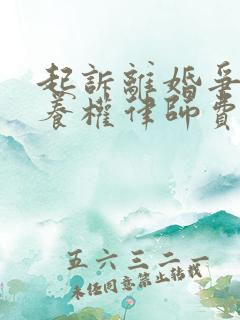 起訴離婚爭
養權律師費
五六三二一
未经同意禁止转载